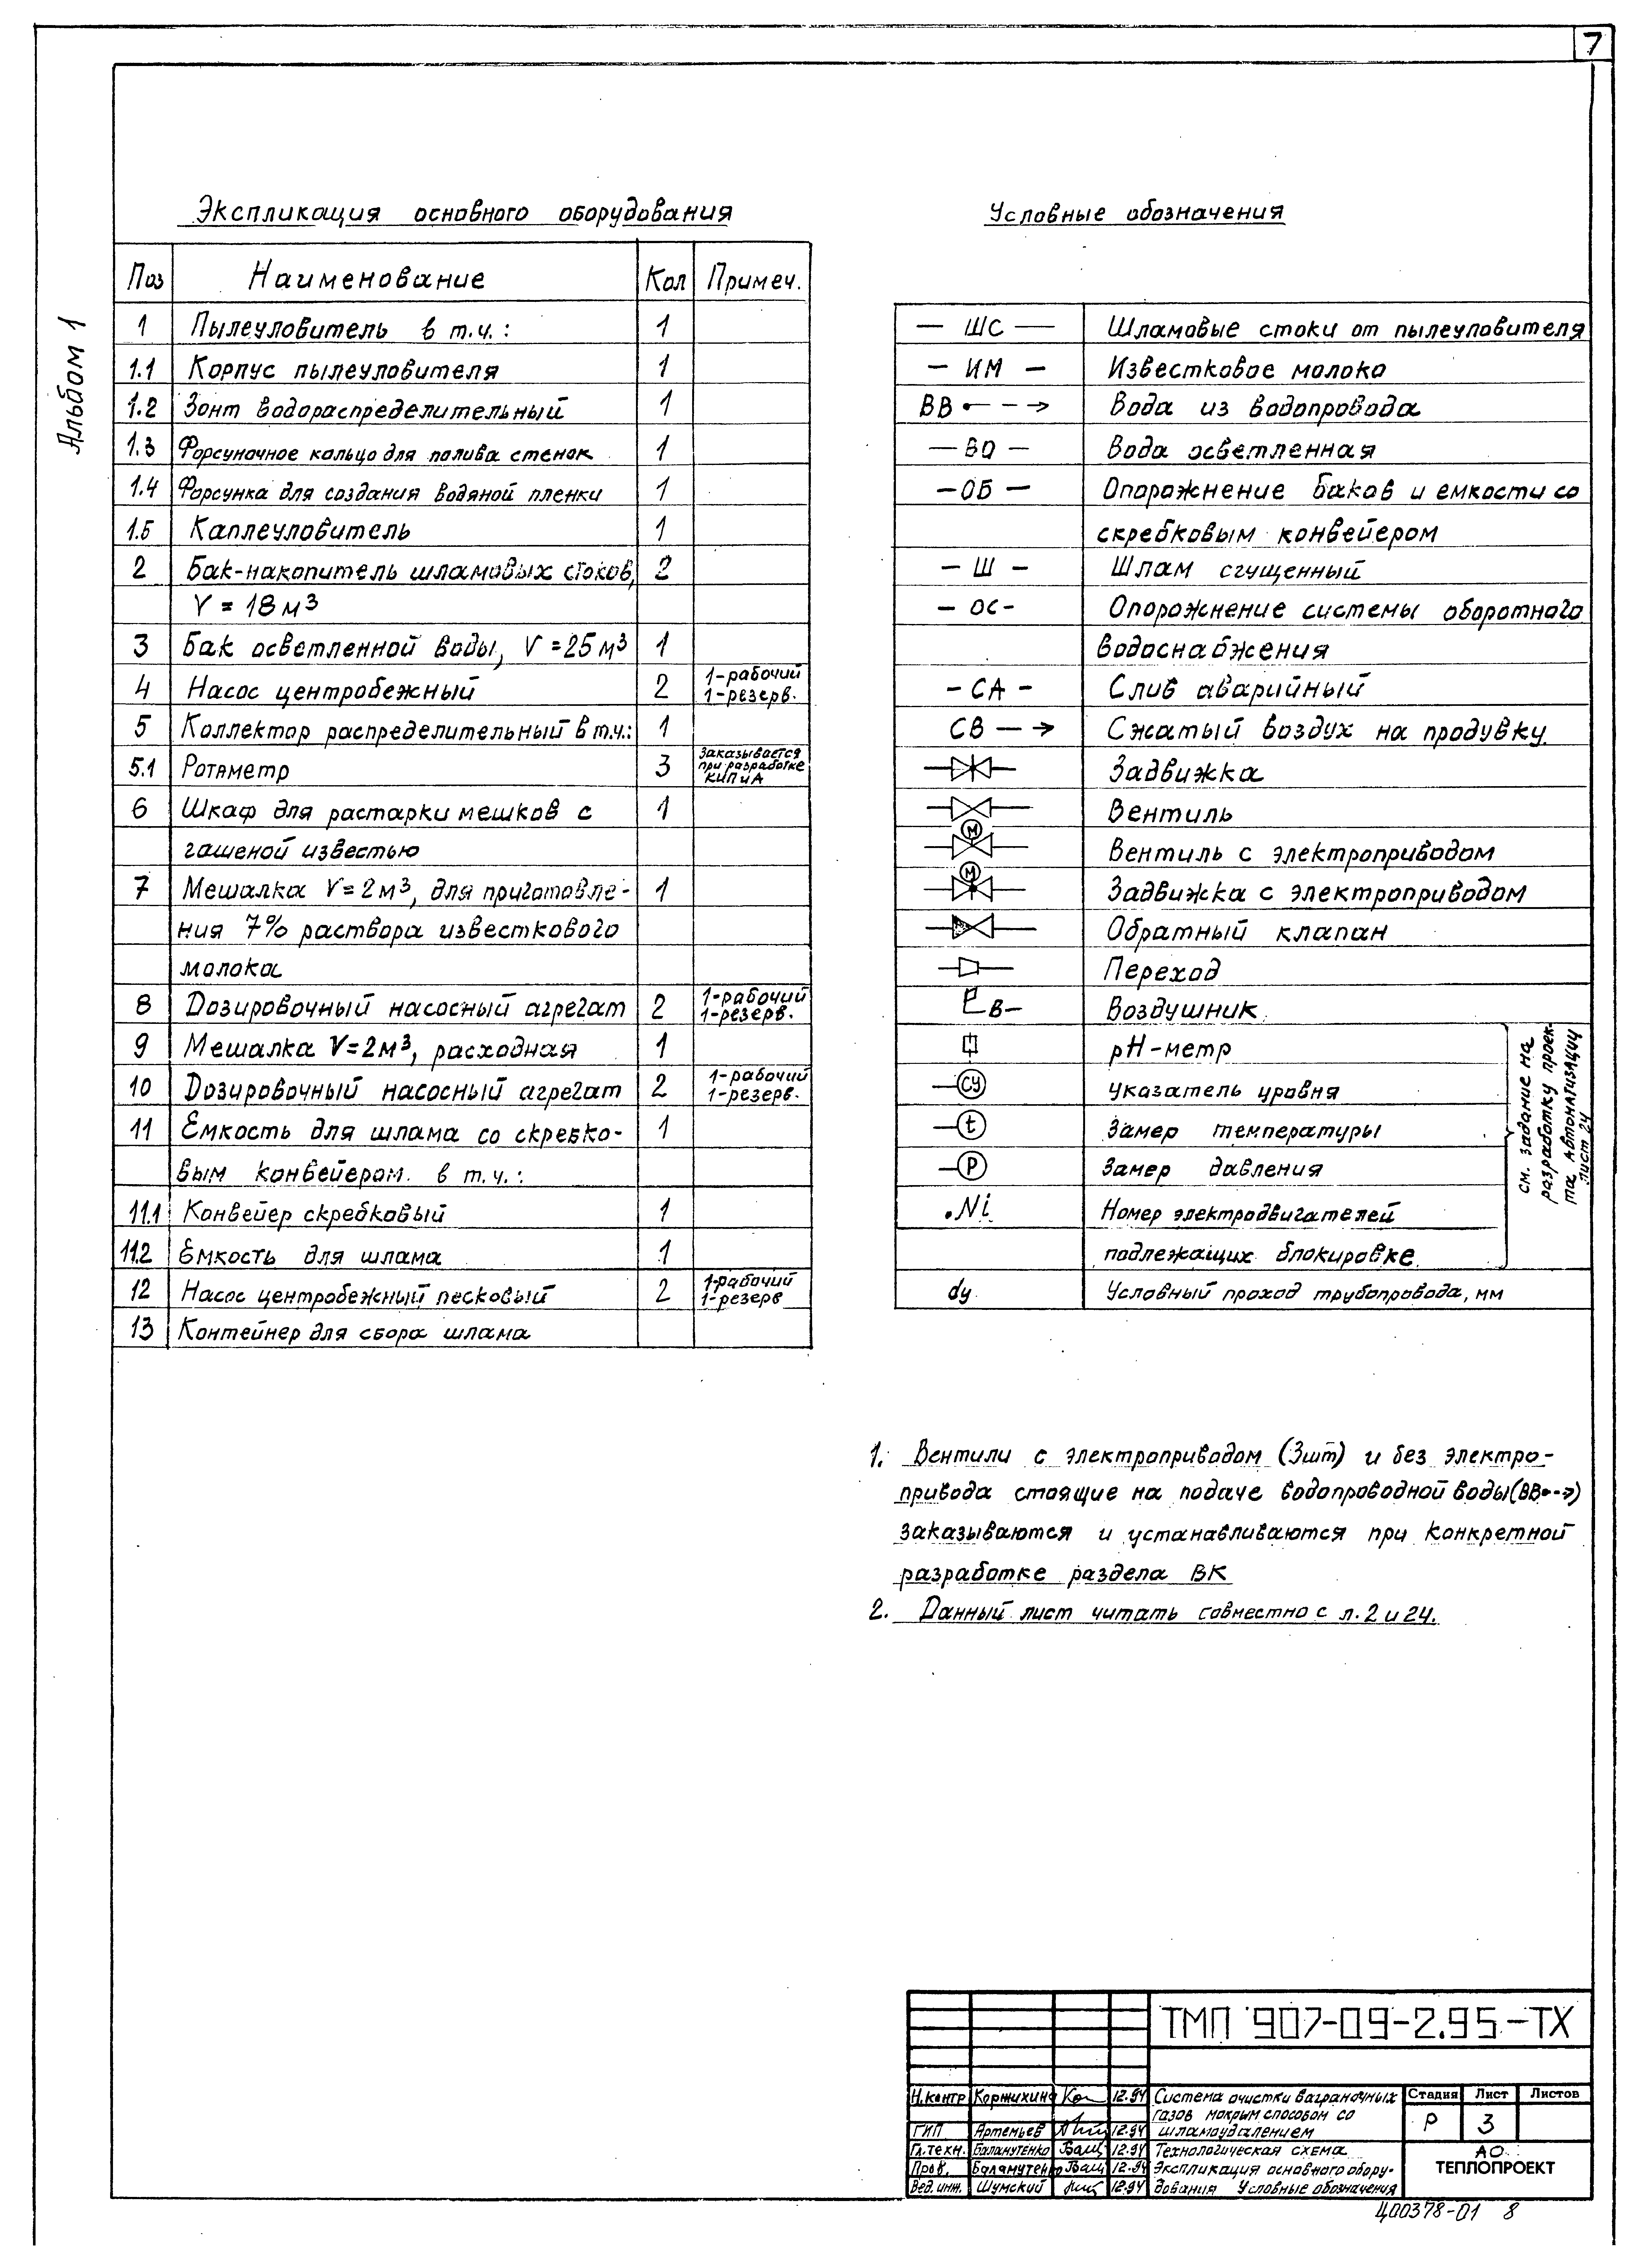 7
Альбом 1
Экспликация основного оборудования
Поз Наименование Кол Примеч.
1 Пылеуловитель в т.ч.: 1
1.1 Корпус пылеуловителя 1
1.2 Зонт водораспределительный 1
1.3 Форсуночное кольцо для полива стенок 1
1.4 Форсунка для создания водяной пленки 1
1.5 Каплеуловитель 1
2 Бак-накопитель шламовых стоков, 2
V = 18 м³
3 Бак осветленной воды, V = 25 м³ 1
4 Насос центробежный 2 1-рабочий
1-резерв.
5 Коллектор распределительный в т.ч.: 1
5.1 Ротаметр 3 Заказывается
при разработке
КИПиА
6 Шкаф для растарки мешков с 1
гашеной известью
7 Мешалка V = 2 м³, для приготовле- 1
ния 7% раствора известкового
молока
8 Дозировочный насосный агрегат 2 1-рабочий
1-резерв.
9 Мешалка V = 2 м³, расходная 1
10 Дозировочный насосный агрегат 2 1-рабочий
1-резерв.
11 Емкость для шлама со скребко- 1
вым конвейером в т.ч.:
11.1 Конвейер скребковый 1
11.2 Емкость для шлама 1
12 Насос центробежный песковый 2 1-рабочий
1-резерв
13 Контейнер для сбора шлама
Условные обозначения
— ШС — Шламовые стоки от пылеуловителя
— ИМ — Известковое молоко
ВВ •– – → Вода из водопровода
— ВО — Вода осветленная
— ОБ — Опорожнение баков и емкости со
скребковым конвейером
— Ш — Шлам сгущенный
— ОС – Опорожнение системы оборотного
водоснабжения
– СА – Слив аварийный
СВ — → Сжатый воздух на продувку.
Задвижка
Вентиль
М Вентиль с электроприводом
М Задвижка с электроприводом
Обратный клапан
Переход
В– Воздушник
рН-метр
СУ Указатель уровня
t Замер температуры
Р Замер давления
.Ni Номер электродвигателей
подлежащих блокировке
см. задание на
разработку проек-
та Автоматизации
лист 24
dy Условный проход трубопровода, мм
1. Вентили с электроприводом (3шт) и без электро-
привода стоящие на подаче водопроводной воды (ВВ•-→)
заказываются и устанавливаются при конкретной
разработке раздела ВК
2. Данный лист читать совместно с л. 2 и 24.
ТМП 907-09-2.95-ТХ
Н.контр Коржихина 12.94
ГИП Артемьев 12.94
Гл.техн. Баламутенко 12.94
Пров. Баламутенко 12.94
Вед.инж. Шумский 12.94
Система очистки ваграночных
газов мокрым способом со
шламоудалением
Технологическая схема
Экспликация основного обору-
дования Условные обозначения
Стадия Лист Листов
Р 3
АО
ТЕПЛОПРОЕКТ
400378-01 8